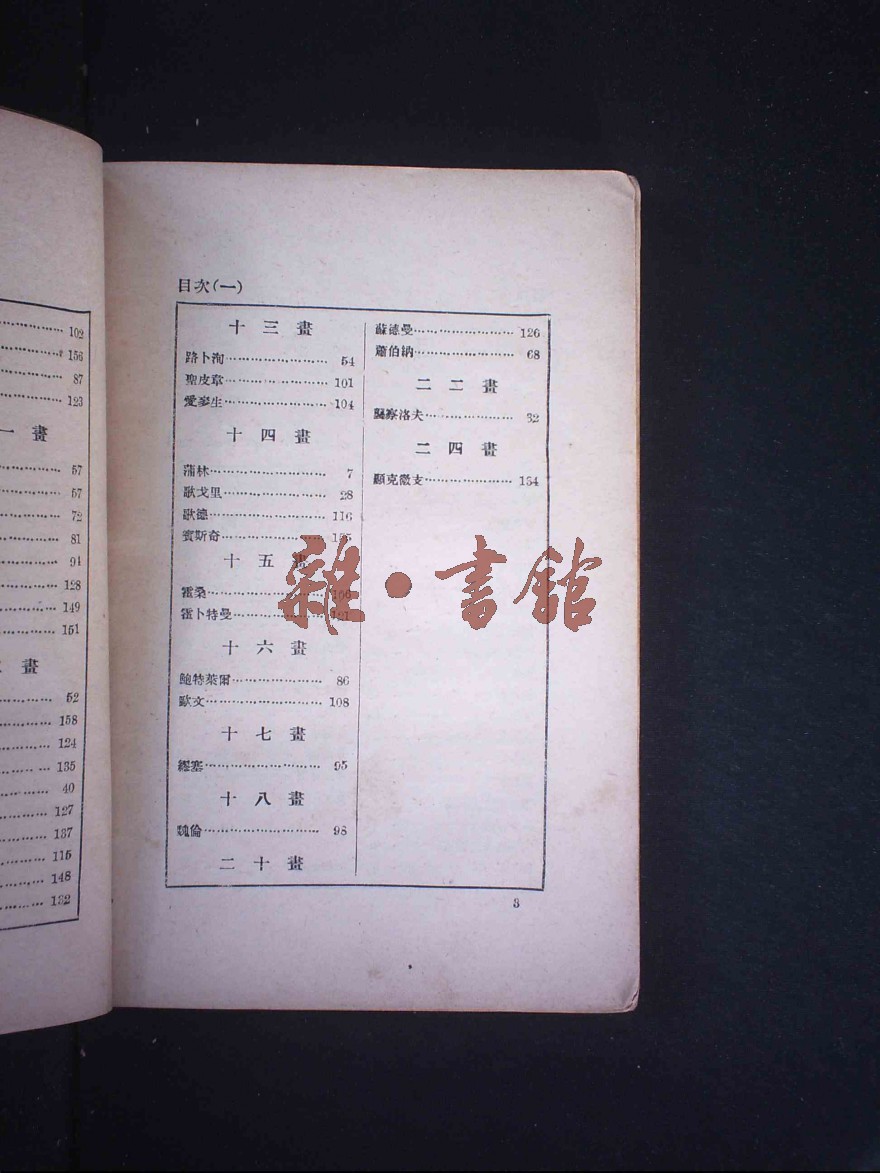 102
156
87
123
一畫
57
57
72
81
91
128
149
151
畫
52
158
124
135
40
127
137
115
148
132
目次(一)
十三畫
路卜洵 54
聖皮韋 101
愛麥生 104
十四畫
蒲林 7
歌戈里 28
歌德 116
賓斯奇
十五畫
霍桑 106
霍卜特曼 121
十六畫
鮑特萊爾 86
歐文 108
十七畫
繆塞 95
十八畫
魏倫 98
二十畫
蘇德曼 126
蕭伯納 68
二二畫
洛夫 32
二四畫
顯克微支 134
3
雜·書館